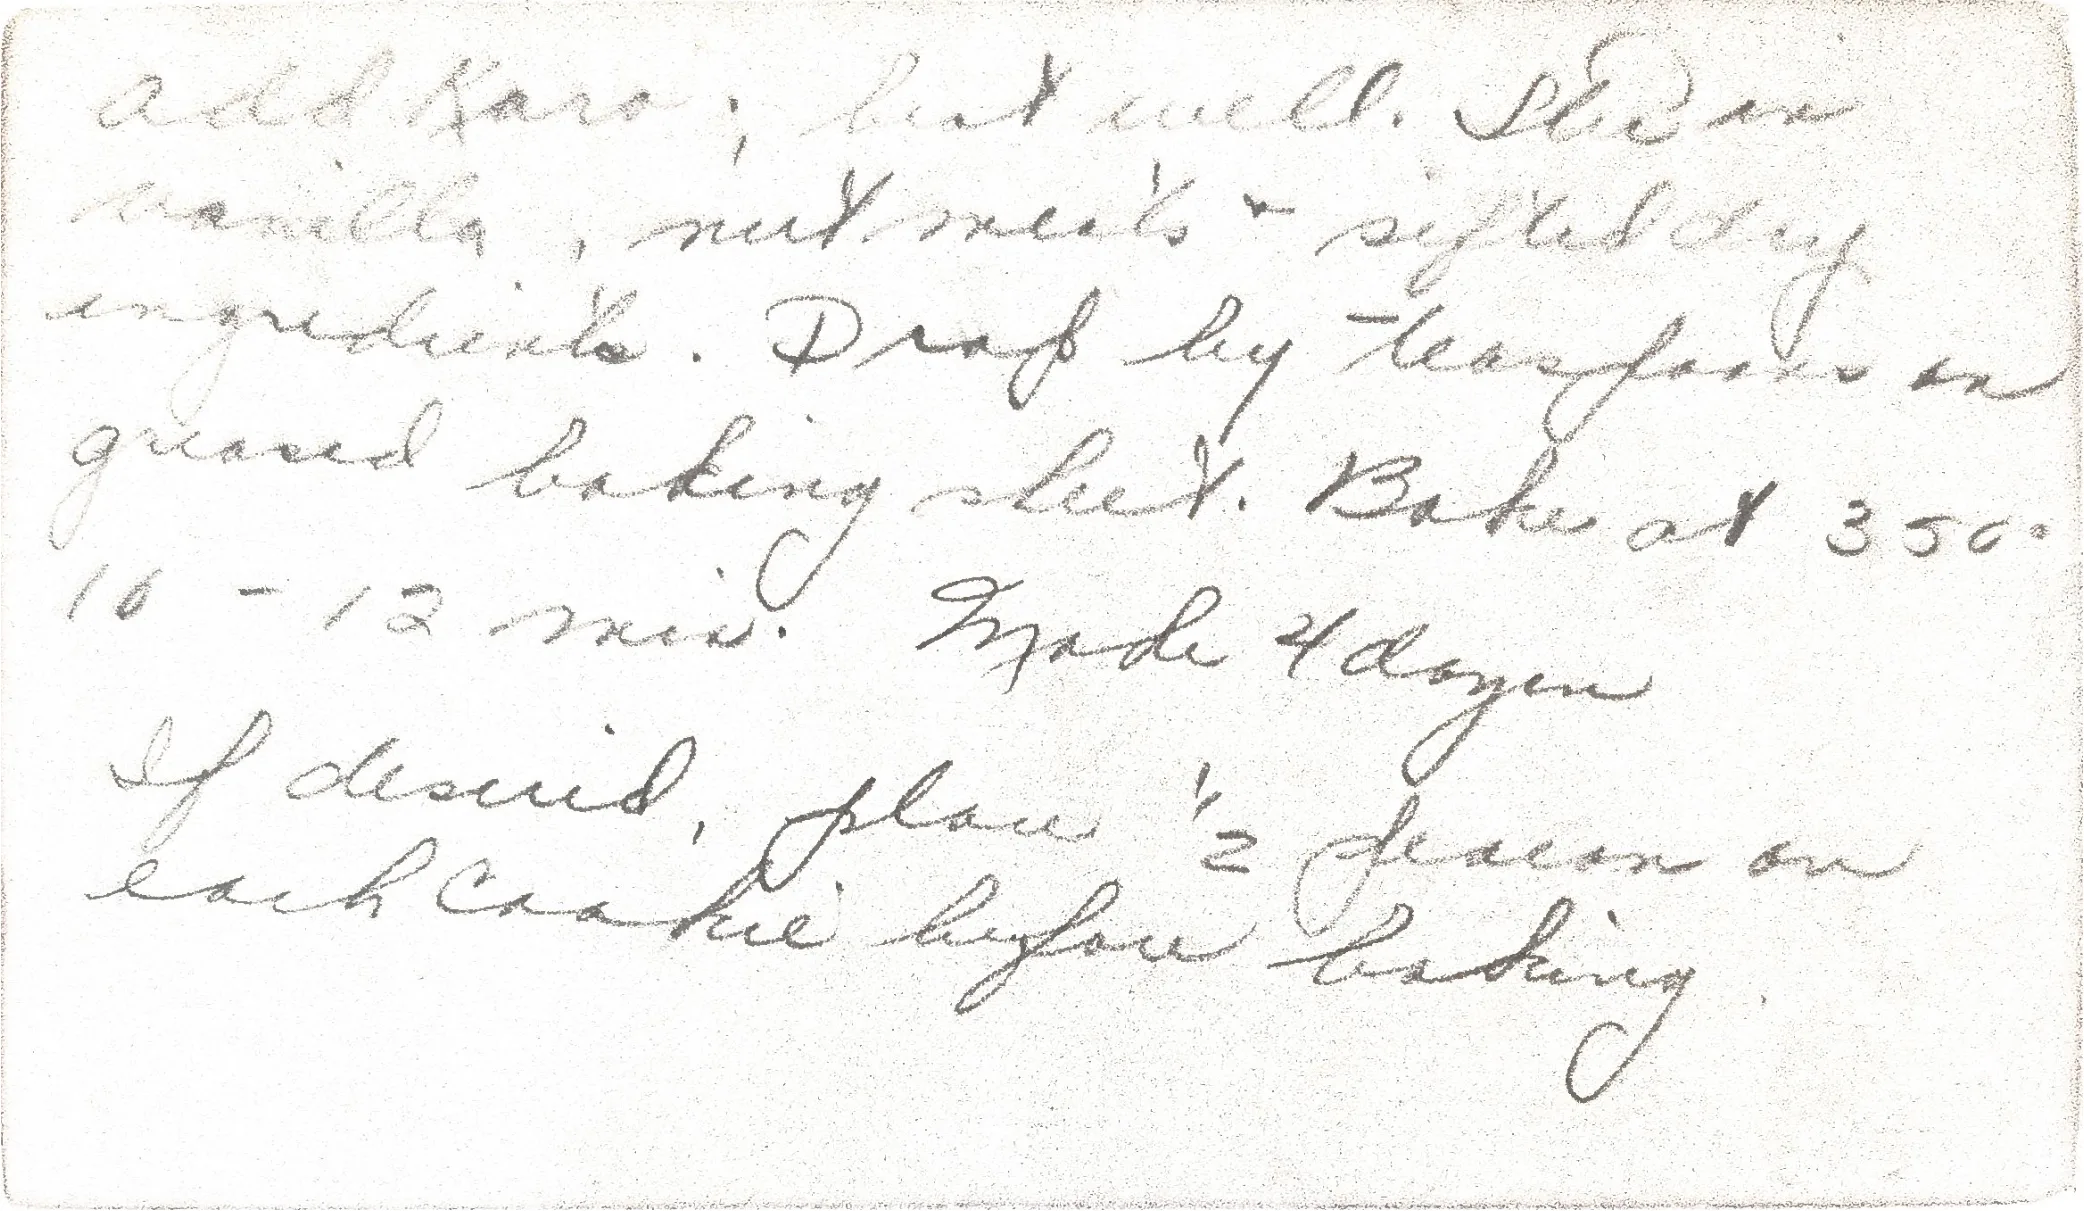 add Karo; beat well. Stir in
vanilla, nutmeats + sifted dry
ingredients. Drop by teaspoons on
greased baking sheet. Bake at 350°
10 - 12 min. Made 4 dozen
If desired, place 1/2 pecan on
each cookie before baking.